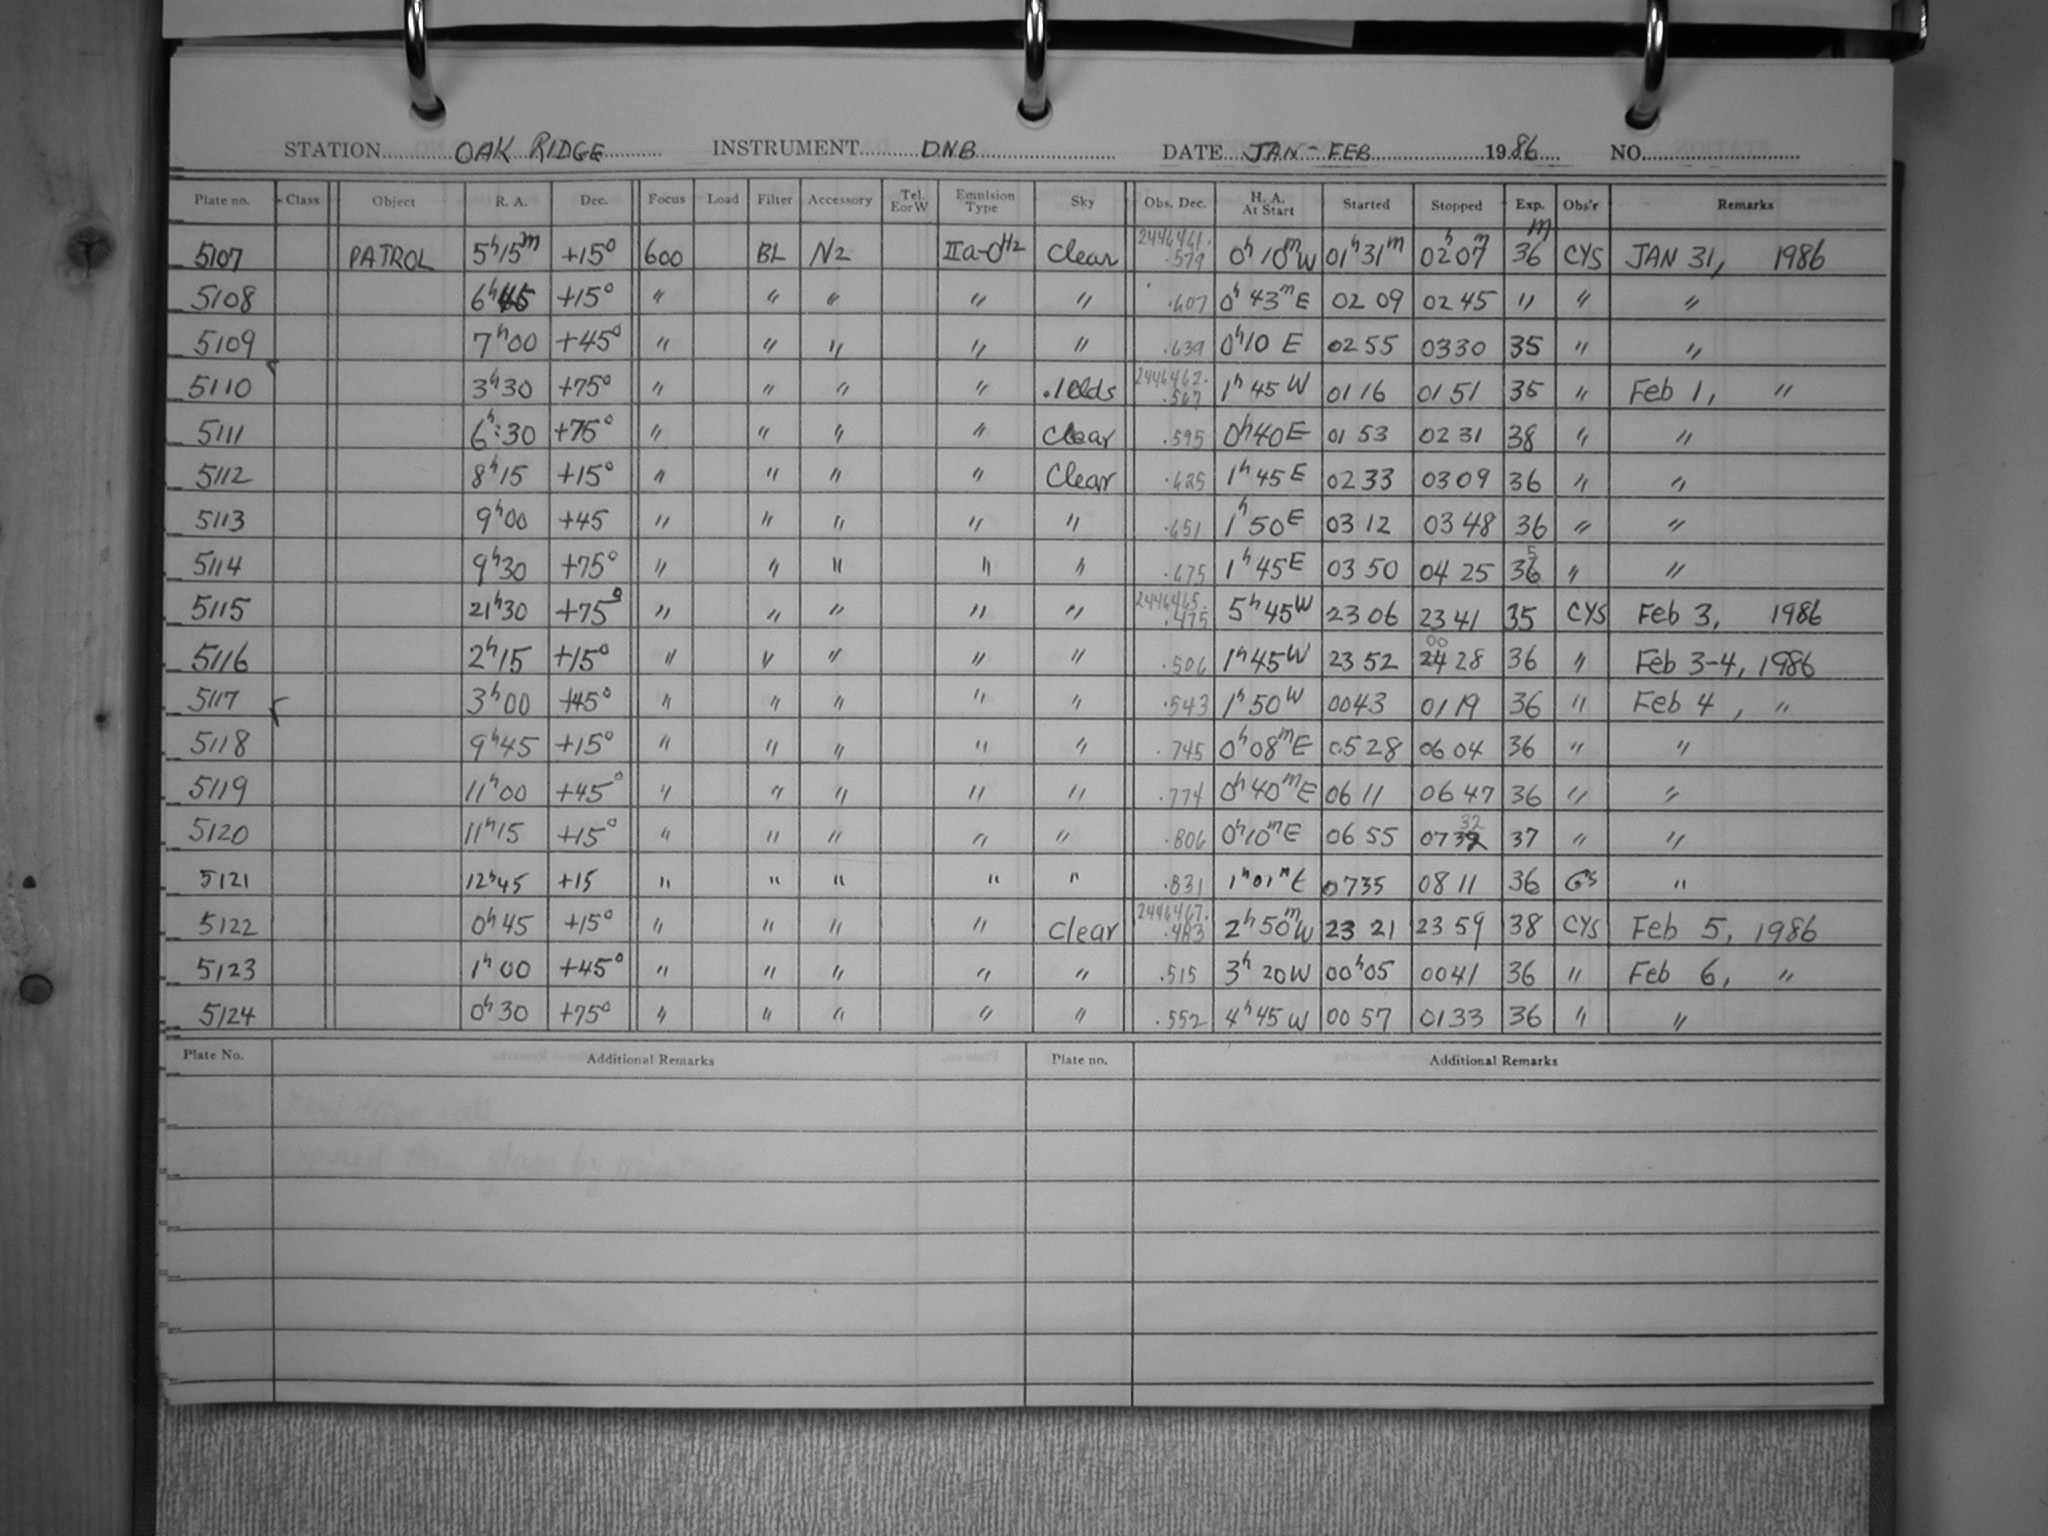 STATION OAK RIDGE INSTRUMENT DNB DATE JAN - FEB 1986 NO.
Plate no. Class Object R. A. Dec. Focus Load Filter Accessory Tel. E or W Emulsion Type Sky Obs. Dec. H. A. At Start Started Stopped Exp. Obs'r Remarks
5107 PATROL 5h15m +15° 600 BL N2 IIa-OH2 Clear 2446461.579 0h10mW 01h31m 02h07m 36m CYS JAN 31, 1986
5108 6h45 +15° " " " " " .607 0h43mE 02 09 02 45 " " "
5109 7h00 +45° " " " " " .639 0h10 E 02 55 03 30 35 " "
5110 3h30 +75° " " " " .1 clds 2446462.567 1h45 W 01 16 01 51 35 " Feb 1, "
5111 6h:30 +75° " " " " Clear .595 0h40E 01 53 02 31 38 " "
5112 8h15 +15° " " " " Clear .625 1h45E 02 33 03 09 36 " "
5113 9h00 +45 " " " " " .651 1h50E 03 12 03 48 36 " "
5114 9h30 +75° " " " " " .675 1h45E 03 50 04 25 365 " "
5115 21h30 +75° " " " " " 2446465.475 5h45W 23 06 23 41 35 CYS Feb 3, 1986
5116 2h15 +15° " " " " " .506 1h45W 23 52 24 00 28 36 " Feb 3-4, 1986
5117 3h00 +45° " " " " " .543 1h50W 0043 0119 36 " Feb 4, "
5118 9h45 +15° " " " " " .745 0h08mE 0528 06 04 36 " "
5119 11h00 +45° " " " " " .774 0h40mE 06 11 06 47 36 " "
5120 11h15 +15° " " " " " .806 0h10mE 06 55 0732 32 37 " "
5121 12h45 +15 " " " " " .831 1h01mE 0735 08 11 36 GS "
5122 0h45 +15° " " " " clear 2446467.483 2h50mW 23 21 23 59 38 CYS Feb 5, 1986
5123 1h00 +45° " " " " " .515 3h20W 00h05 0041 36 " Feb 6, "
5124 0h30 +75° " " " " " .552 4h45W 00 57 0133 36 " "
Plate No. Additional Remarks Plate no. Additional Remarks